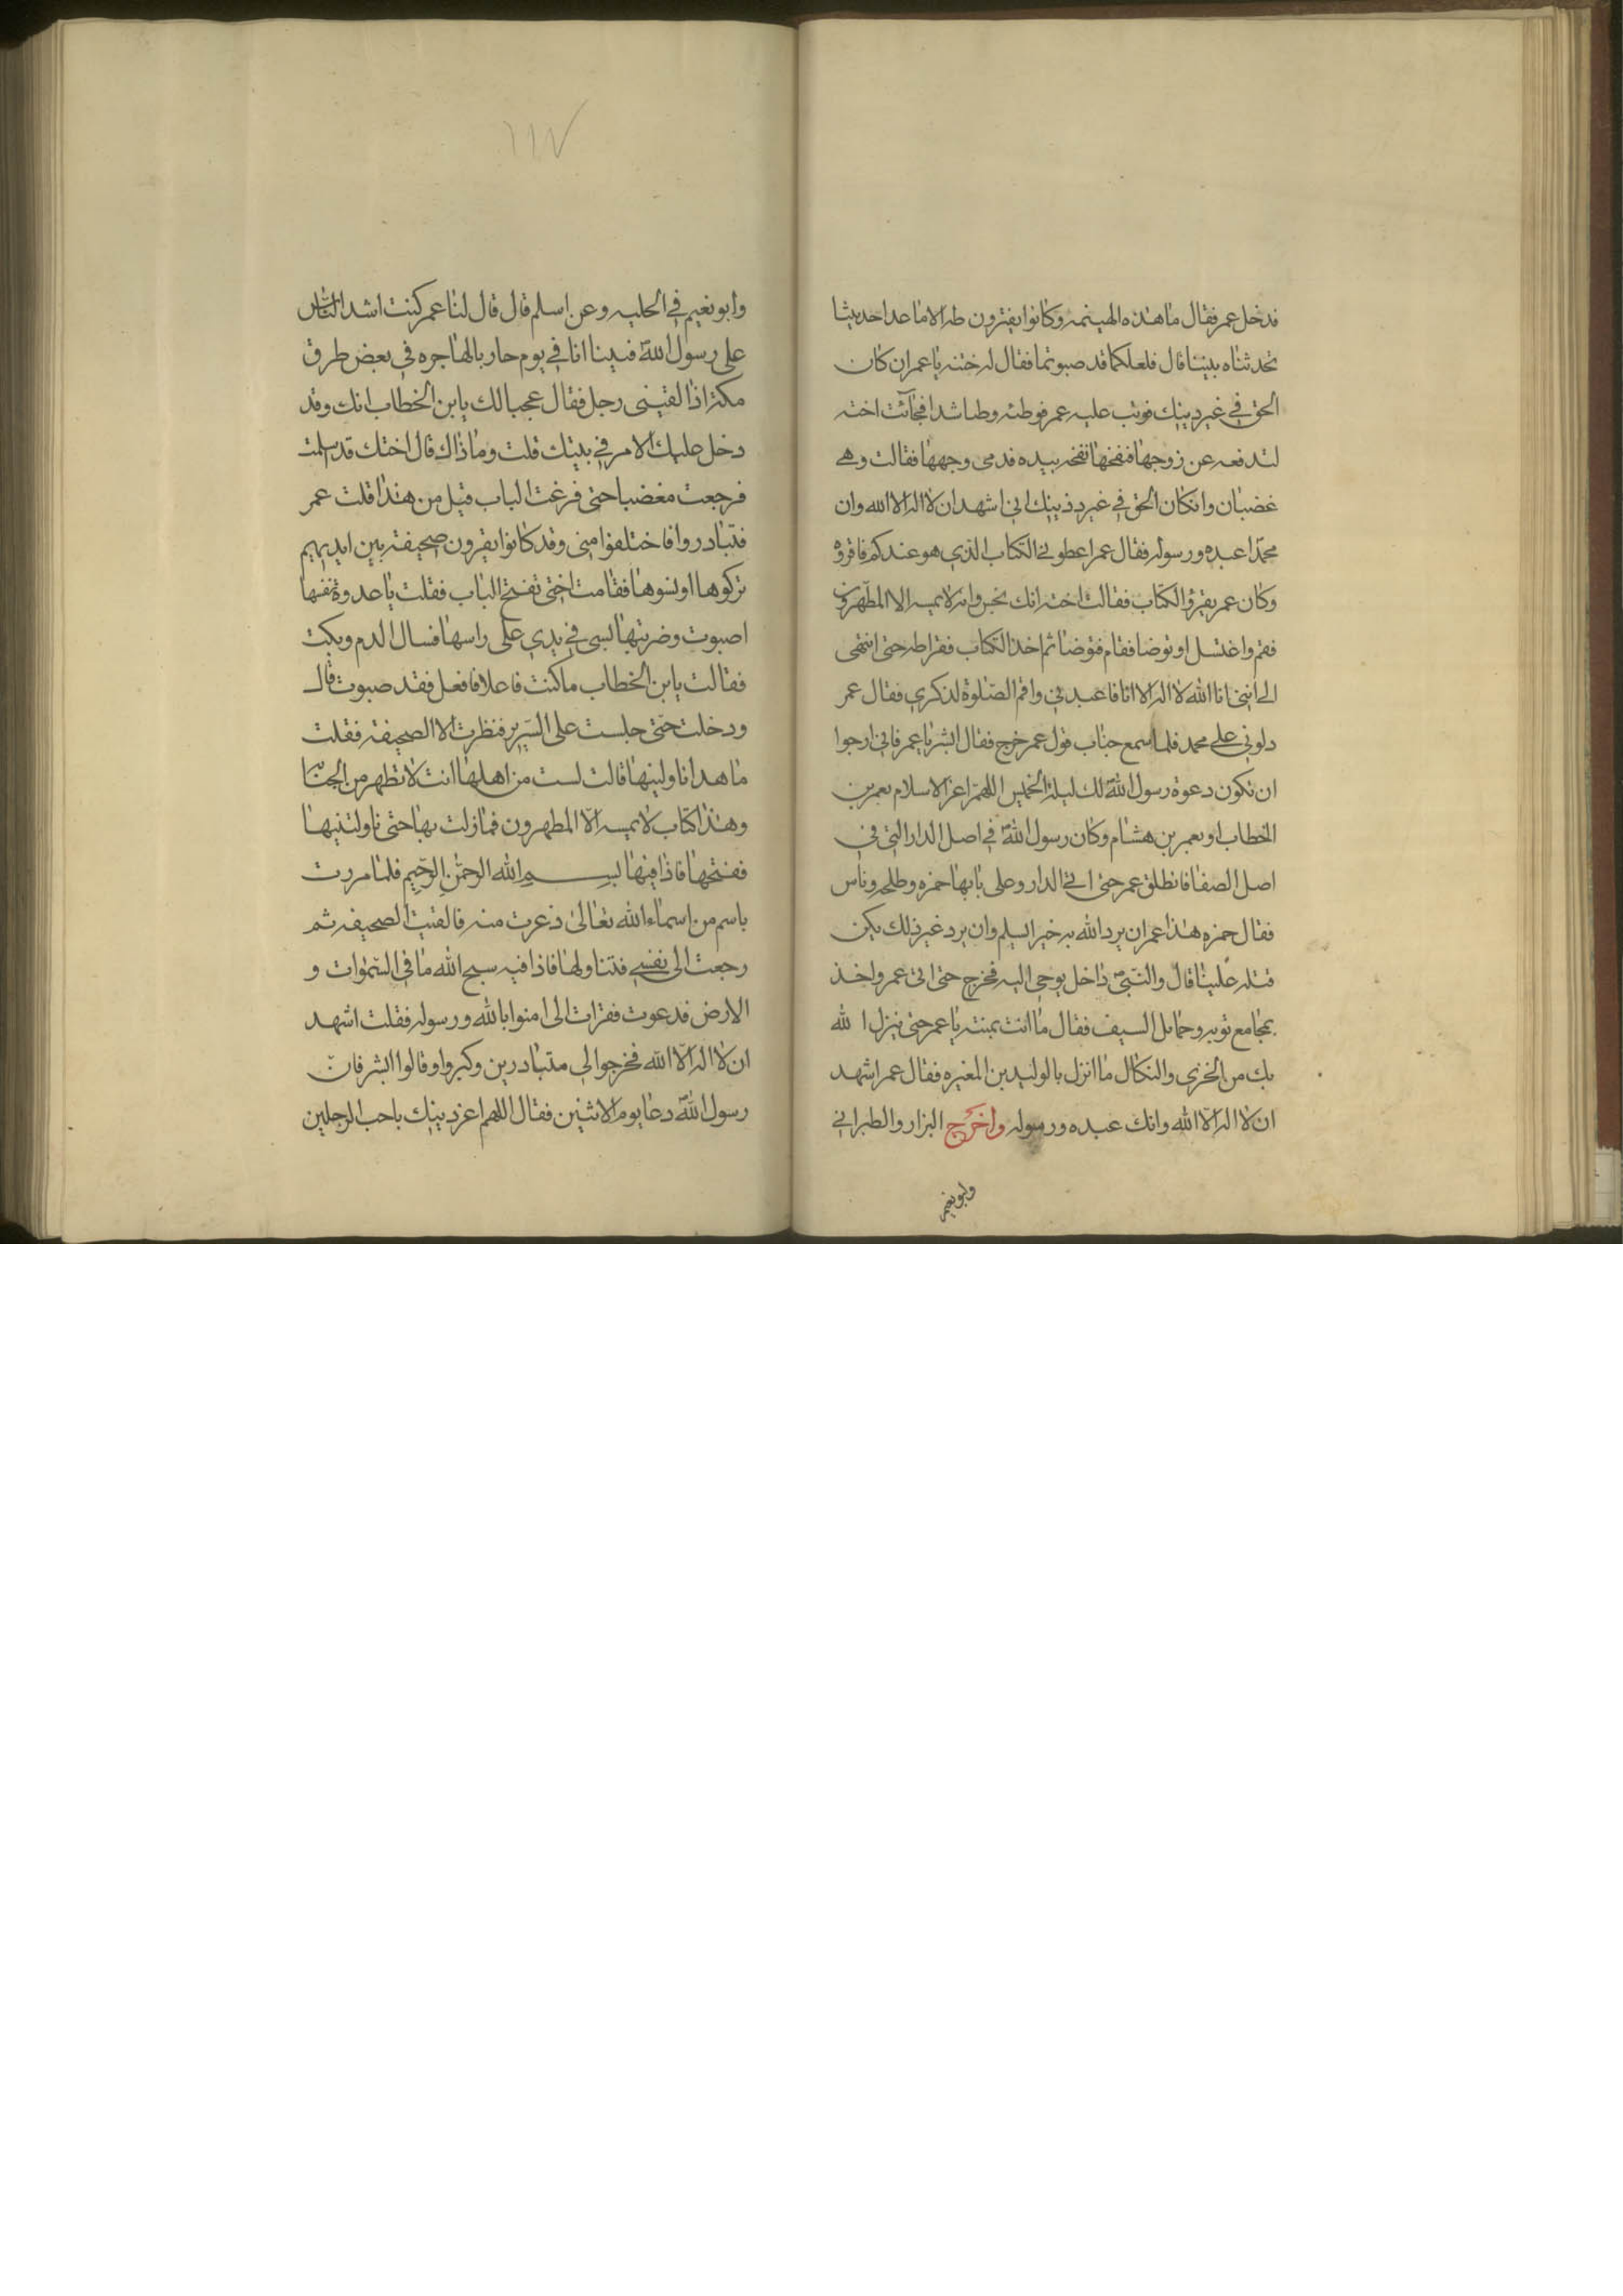 فدخل عمر فقال ما هذه الهينمه وكانوا يقرون طه الا ما عدا حديثا
تحدثناه بيننا قال فلعلكما قد صبوتما فقال له ختنه يا عمر ان كان
الحق في غير دينك فوثب عليه عمر فوطئه وطا شدا فجآئت اخته
لتدفعه عن زوجها فنفخها نفخه بيده فدمى وجهها فقالت وهي
غضبان وانكان الحق في غير دينك اني اشهد ان لا اله الا الله وان
محمدا عبده ورسوله فقال عمر اعطوني الكتاب الذي هو عندكم فاقروه
وكان عمر يقرؤ الكتاب فقالت اخته انك نجس وانه لا يمسه الا المطهرون
فقم واغتسل او توضا فقام فتوضا ثم اخذ الكتاب فقرا طه حتى انتهى
الى انني انا الله لا اله الا انا فاعبدني واقم الصلوة لذكري فقال عمر
دلوني على محمد فلما سمع جناب قول عمر خرج فقال ابشر يا عمر فاني ارجوا
ان تكون دعوة رسول الله لك ليلة الخميس اللهم اعز الاسلام بعمر بن
الخطاب او بعمر بن هشام وكان رسول الله في اصل الدار التي في
اصل الصفا فانطلق عمر حتى اتى الدار وعلى بابها حمزه وطلحه وناس
فقال حمزه هذا عمر ان يرد الله به خيرا يسلم وان يرد غير ذلك يكن
قتله علينا قال والنبي داخل يوحى اليه فخرج حتى اتى عمر واخذ
بمجامع ثوبه وحمايل السيف فقال ما انت بمنته يا عمر حتى ينزل الله
بك من الخزي والنكال ما انزل بالوليد بن المغيره فقال عمر اشهد
ان لا اله الا الله وانك عبده ورسوله واخرج البزار والطبراني
وابو نعيم
١١٧
وابو نعيم في الحليه وعن اسلم قال قال لنا عمر كنت اشد الناس
على رسول الله فبينا انا في يوم حار بالهاجره في بعض طرق
مكة اذا لقيني رجل فقال عجبا لك يا بن الخطاب انك وقد
دخل عليك الامر في بيتك قلت وما ذاك قال اختك قد اسلمت
فرجعت مغضبا حتى قرعت الباب قيل من هذا قلت عمر
فتبادروا فاختلفوا مني وقد كانوا يقرون صحيفة بين ايديهم
تركوها او نسوها فقامت اختي تفتح الباب فقلت يا عدوة نفسها
اصبوت وضربتها بشي في يدي على راسها فسال الدم وبكت
فقالت يا بن الخطاب ما كنت فاعلا فافعل فقد صبوت قال
ودخلت حتى جلست على السرير فنظرت الا الصحيفه فقلت
ما هذا ناولينيها قالت لست من اهلها انت لا تطهر من الجنابة
وهذا كتاب لا يمسه الا المطهرون فما زلت بها حتى ناولتنيها
ففتحتها فاذا فيها بسم الله الرحمن الرحيم فلما مررت
باسم من اسماء الله تعالى ذعرت منه فالقيت الصحيفه ثم
رجعت الى نفسي فتناولها فاذا فيه سبح الله ما في السموات و
الارض فدعوت فقرات الى امنوا بالله ورسوله فقلت اشهد
ان لا اله الا الله فخرجوا الي متبادرين وكبروا وقالوا ابشر فان
رسول الله دعا يوم الاثنين فقال اللهم اعز دينك باحب الرجلين